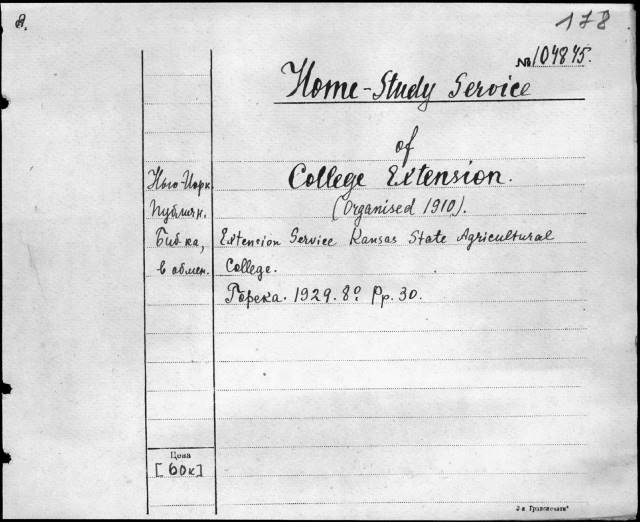 8.
178
№ 104845.
Home-Study Service
of
College Extension.
(Organised 1910).
Нью-Йорк.
Публичн.
Биб-ка,
в обмен.
Extension Service Kansas State Agricultural
College.
Topeka. 1929. 8º. Pp. 30.
Цена
[60к]